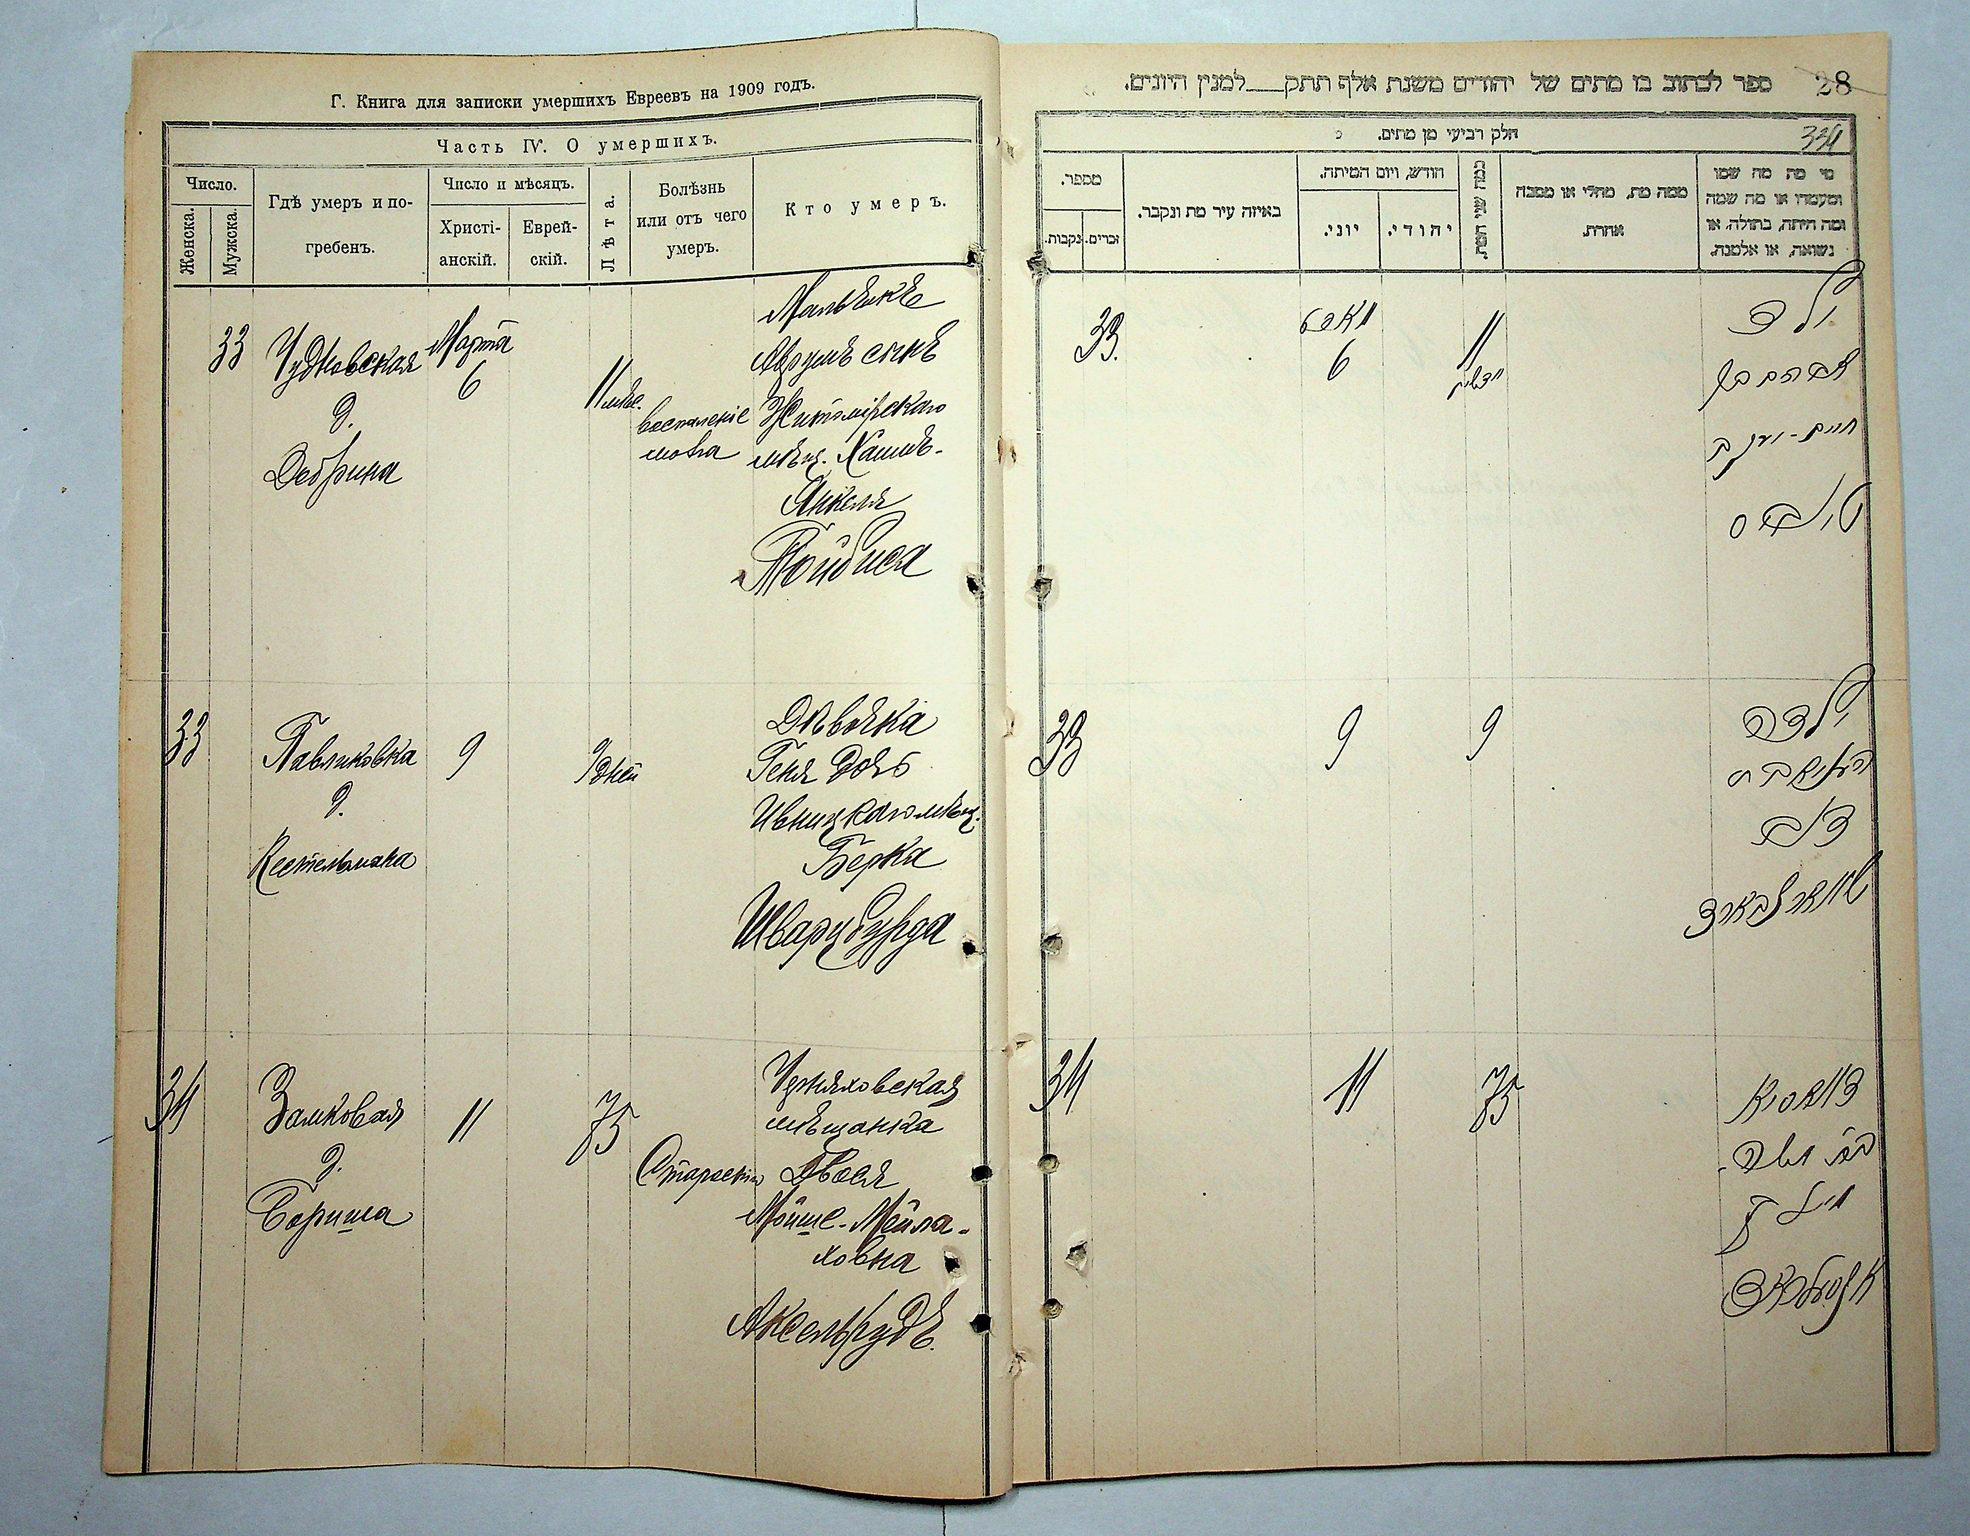 Г. Книга для записки умершихъ Евреевъ на 1909 годъ.
Часть IV. О умершихъ.
Число.
Женска.
Мужска.
Гдѣ умеръ и по-
гребенъ.
Число и мѣсяцъ.
Христі-
анскій.
Еврей-
скій.
Лѣта.
Болѣзнь
или отъ чего
умеръ.
Кто умеръ.
33
Чудновская
д.
Марта
6
11 мѣс.
воспаленіе
мозга
Мальчикъ
Аврумъ сынъ
Житомірскаго
мѣщ. Хаимъ-
Янкеля
Тойбиса
33
Павликовка
д.
Кестельмана
9
9 дней
Дѣвочка
Геня дочь
Ивницкаго мѣщ.
Берка
Шварцбурда
34
Замковая
д.
Бориша
11
75
Старость
Черняховская
мѣщанка
Двося
Мойше-Мейла-
ховна
Аксельрудъ.
ספר לכתוב בו מתים של יהודים משנת אלף תתק___למנין היונים.
28
334
חלק רביעי מן מתים.
מספר.
נקבות.
זכרים.
באיזה עיר מת ונקבר.
חודש, ויום המיתה.
יוני.
יהודי.
כמה שני המת.
ממה מת, מחלי או מסבה
אחרת.
מי מת מה שמו
ומעמדו או מה שמה
ומה היתה, בתולה, או
נשואה, או אלמנה.
33.
מארט
6
11
ילד
אברהם בן
חיים-יענקל
טויבס
33
9
9
ילדה
בערל
34
11
75
דוואסיא
אקסעלראד